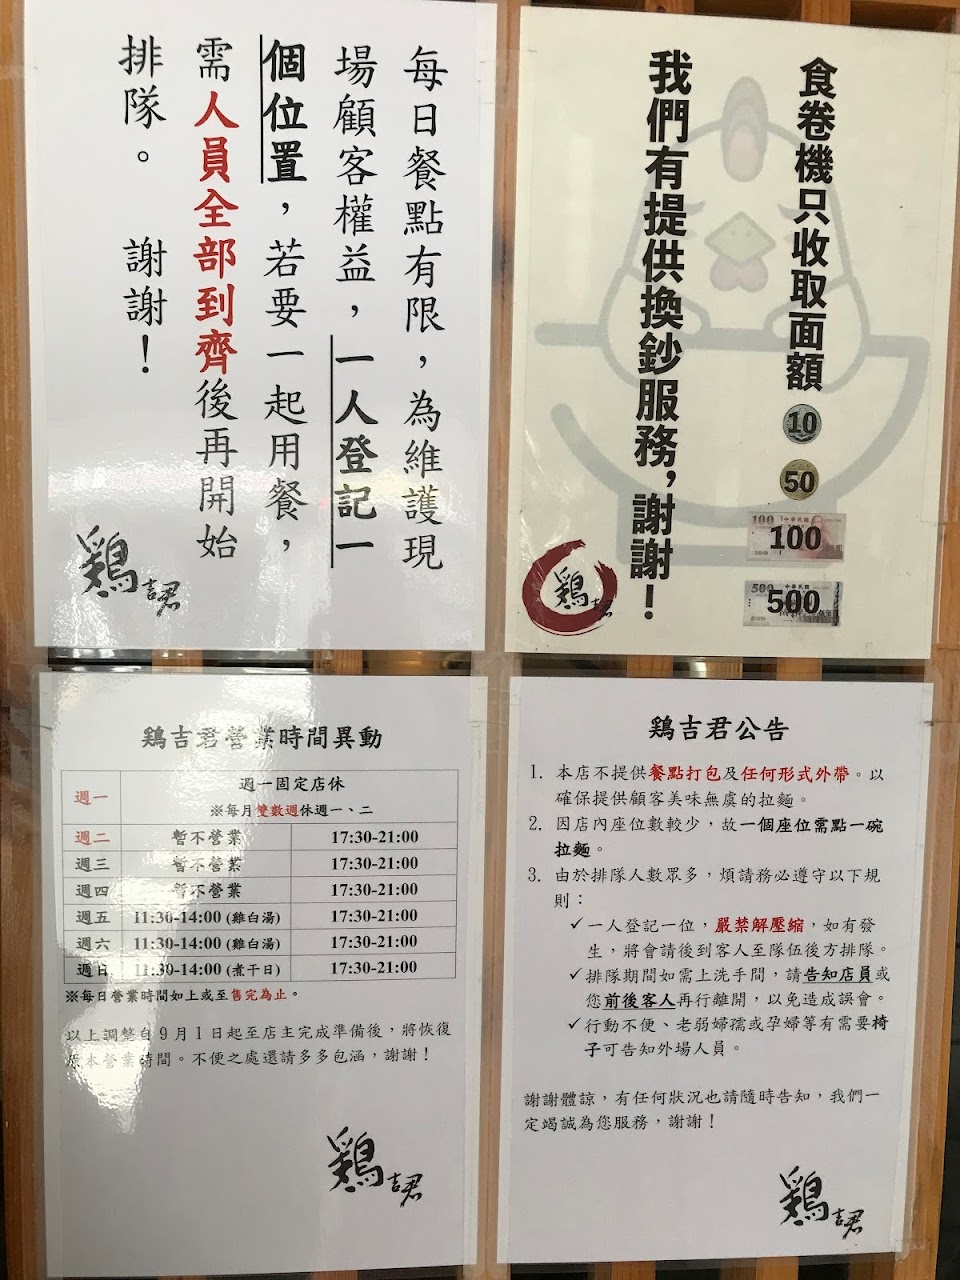 每日餐點有限，為維護現
場顧客權益，一人登記一
個位置，若要一起用餐，
需人員全部到齊後再開始
排隊。 謝謝！
鶏吉君
食卷機只收取面額
10
50
100
500
我們有提供換鈔服務，謝謝！
鶏吉君
鶏吉君營業時間異動
週一 週一固定店休
※每月雙數週休週一、二
週二 暫不營業 17:30-21:00
週三 暫不營業 17:30-21:00
週四 暫不營業 17:30-21:00
週五 11:30-14:00 (雞白湯) 17:30-21:00
週六 11:30-14:00 (雞白湯) 17:30-21:00
週日 11:30-14:00 (煮干日) 17:30-21:00
※每日營業時間如上或至售完為止。
以上調整自9月1日起至店主完成準備後，將恢復
原本營業時間。不便之處還請多多包涵，謝謝！
鶏吉君
鶏吉君公告
1. 本店不提供餐點打包及任何形式外帶。以
確保提供顧客美味無虞的拉麵。
2. 因店內座位數較少，故一個座位需點一碗
拉麵。
3. 由於排隊人數眾多，煩請務必遵守以下規
則：
✓一人登記一位，嚴禁解壓縮，如有發
生，將會請後到客人至隊伍後方排隊。
✓排隊期間如需上洗手間，請告知店員或
您前後客人再行離開，以免造成誤會。
✓行動不便、老弱婦孺或孕婦等有需要椅
子可告知外場人員。
謝謝體諒，有任何狀況也請隨時告知，我們一
定竭誠為您服務，謝謝！
鶏吉君